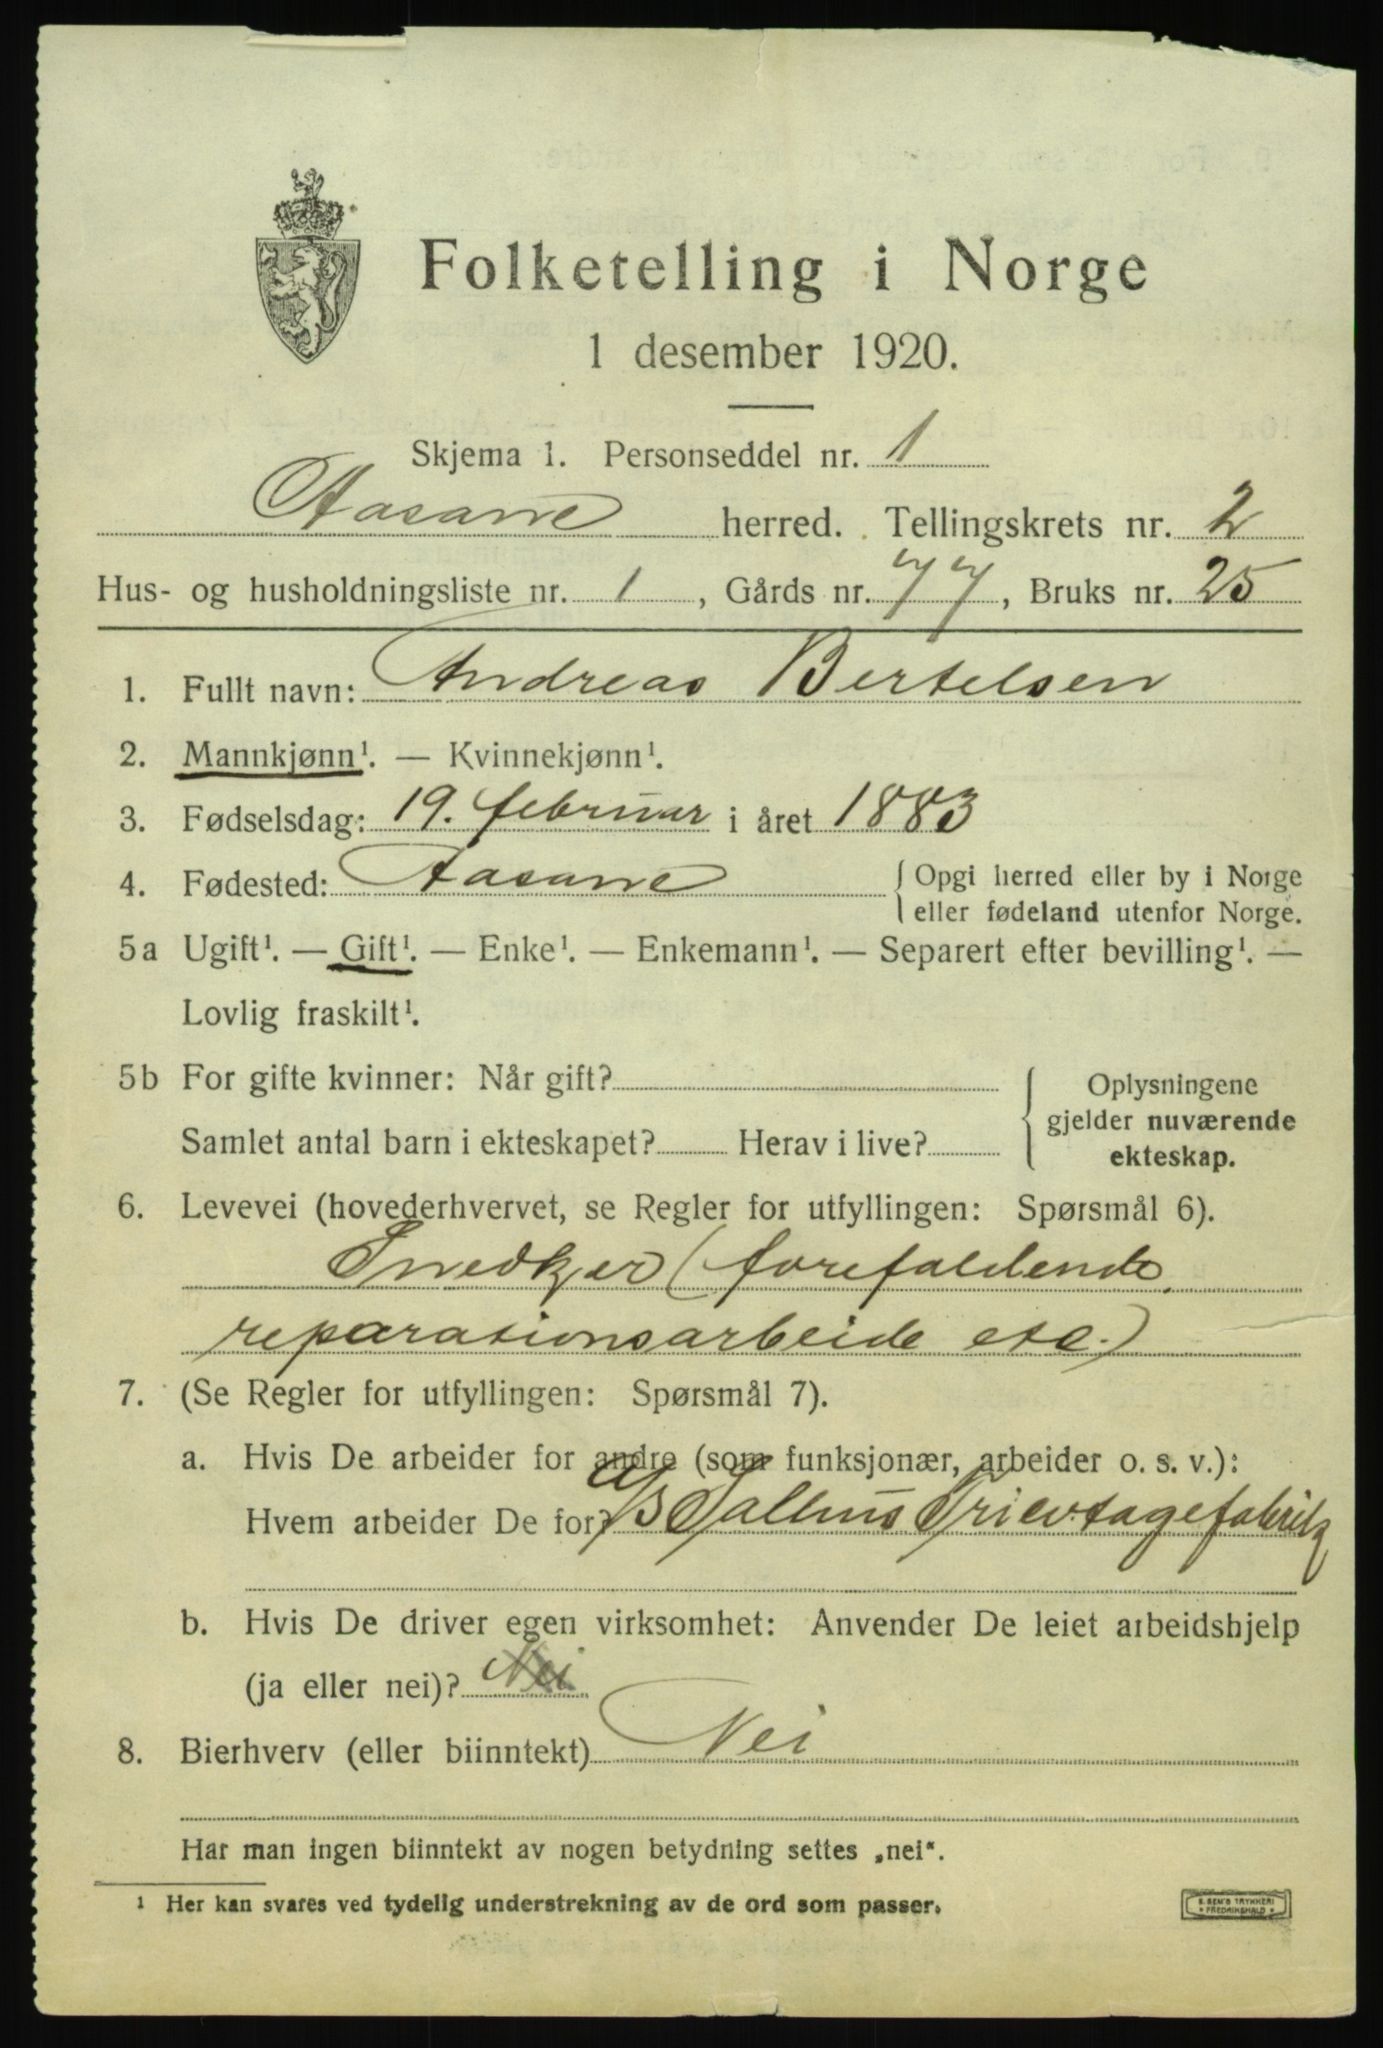 Folketelling i Norge
1 desember 1920.
Skjema 1. Personseddel nr. 1
Aasane herred. Tellingskrets nr. 2
Hus- og husholdningsliste nr. 1, Gårds nr. 77, Bruks nr. 25
1. Fullt navn: Andreas Bertelsen
2. Mannkjønn¹. — Kvinnekjønn¹.
3. Fødselsdag: 19. februar i året 1883
4. Fødested: Aasane { Opgi herred eller by i Norge
eller fødeland utenfor Norge.
5a Ugift¹. — Gift¹. — Enke¹. — Enkemann¹. — Separert efter bevilling¹. —
Lovlig fraskilt¹.
5b For gifte kvinner: Når gift? { Oplysningene
gjelder nuværende
Samlet antal barn i ekteskapet? Herav i live? ekteskap.
6. Levevei (hovederhvervet, se Regler for utfyllingen: Spørsmål 6).
Snedker (forefaldende
reparationsarbeide etc.)
7. (Se Regler for utfyllingen: Spørsmål 7).
a. Hvis De arbeider for andre (som funksjonær, arbeider o. s. v.):
Hvem arbeider De for? A/S Salhus Tricotagefabrik
b. Hvis De driver egen virksomhet: Anvender De leiet arbeidshjelp
(ja eller nei)? Nei
8. Bierhverv (eller biinntekt) Nei
Har man ingen biinntekt av nogen betydning settes „nei“.
¹ Her kan svares ved tydelig understrekning av de ord som passer.
E. SEM'S TRYKKERI
* FREDRIKSHALD *